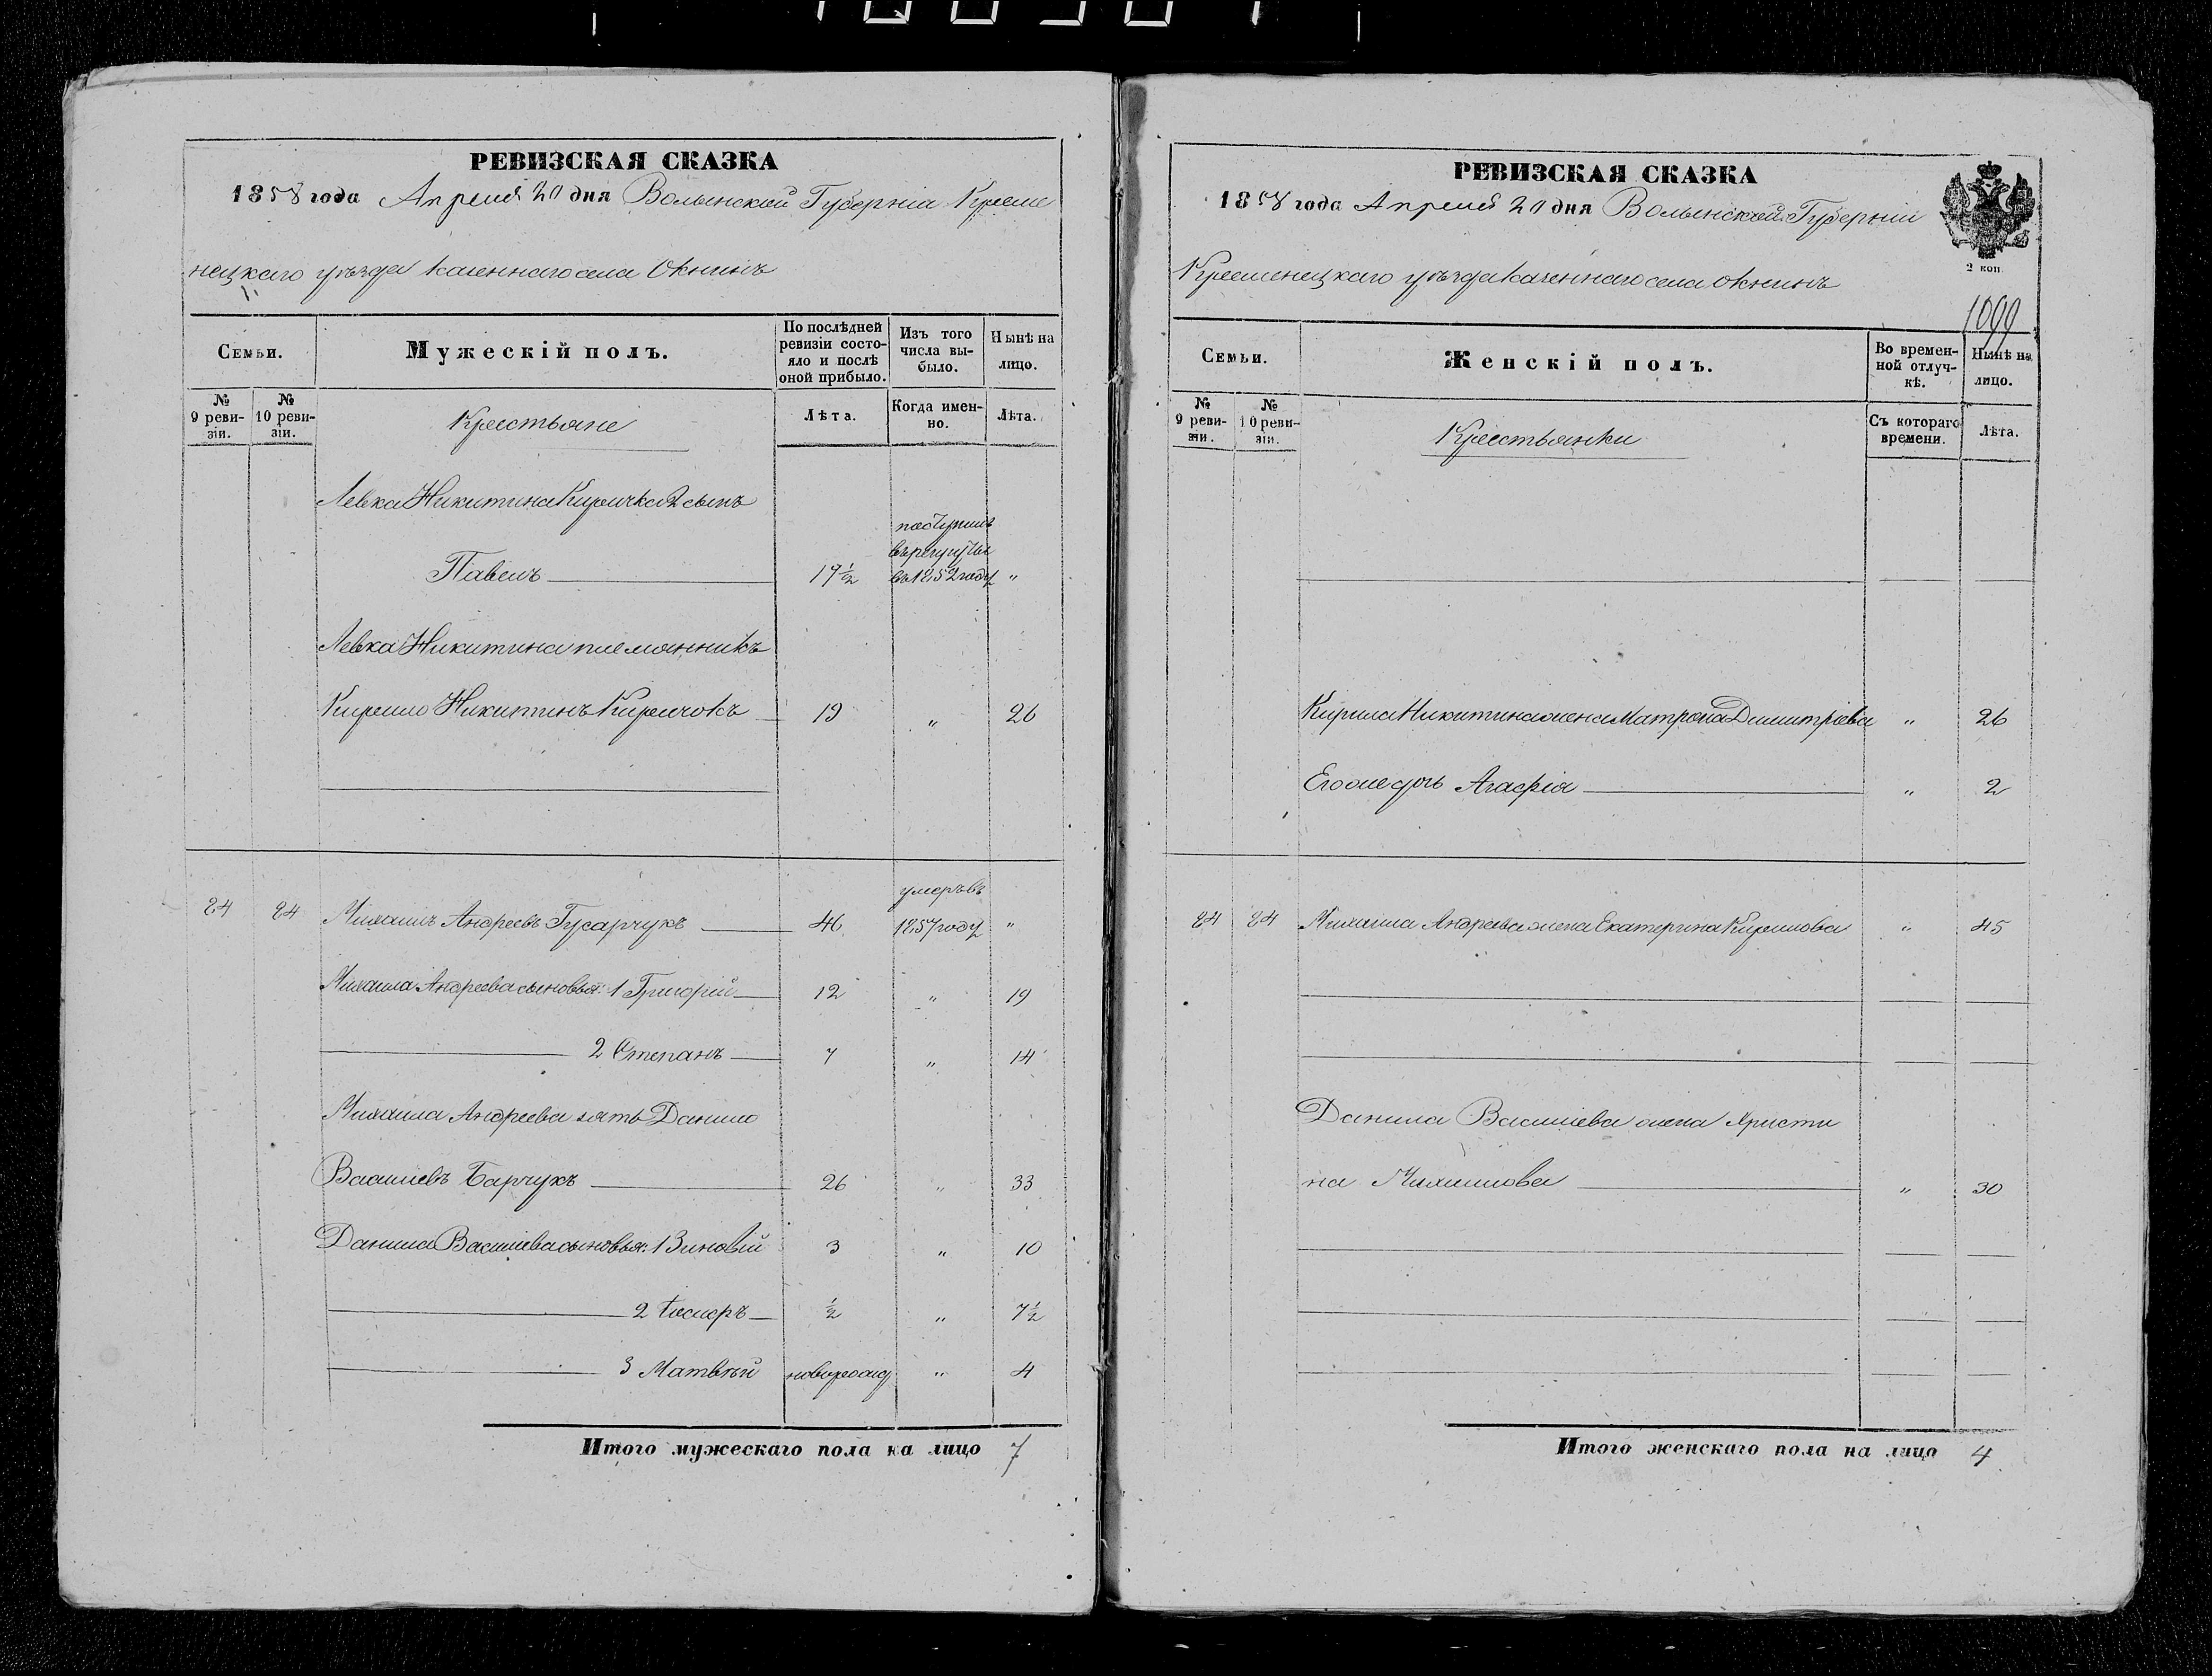 РЕВИЗСКАЯ СКАЗКА
1858 года Апреля 20 дня Волынской Губерніи Креме
нецкаго уѣзда казеннаго села Окнинъ
Семьи.
Мужескій полъ.
По послѣдней ревизіи состояло и послѣ оной прибыло.
Изъ того числа выбыло.
Нынѣ на лицо.
№ 9 ревизіи.
№ 10 ревизіи.
Крестьяне
Лѣта.
Когда именно.
Лѣта.
Левка Никитина Киричка 2 сынъ
поступилъ
въ рекруты
Павелъ 19½ въ 1852 году "
Левка Никитина племянникъ
Кирило Никитинъ Киричокъ 19 " 26
умеръ въ
24 24 Михаилъ Андреевъ Гусарчукъ 46 1857 году "
Михаила Андреева сыновья: 1 Григорій 12 " 19
2 Степанъ 7 " 14
Михаила Андреева зять Данило
Василіевъ Барчукъ 26 " 33
Данила Василіева сыновья: 1 Зиновій 3 " 10
2 ½ " 7½
3 Матвѣй новорожд " 4
Итого мужескаго пола на лицо 7
РЕВИЗСКАЯ СКАЗКА
1858 года Апреля 20 дня Волынской Губерніи
Кременецкаго уѣзда казеннаго села Окнинъ
2 коп.
1099
Семьи.
Женскій полъ.
Во временной отлучкѣ.
Нынѣ на лицо.
№ 9 ревизіи.
№ 10 ревизіи.
Крестьянки
Съ котораго времени.
Лѣта.
Кирила Никитина жена Матрона Димитріева " 26
Его же дочь Агафія " 2
24 24 Михаила Андреева жена Екатерина Кирилова " 45
Данила Василіева жена Христи
на Михаилова " 30
Итого женскаго пола на лицо 4